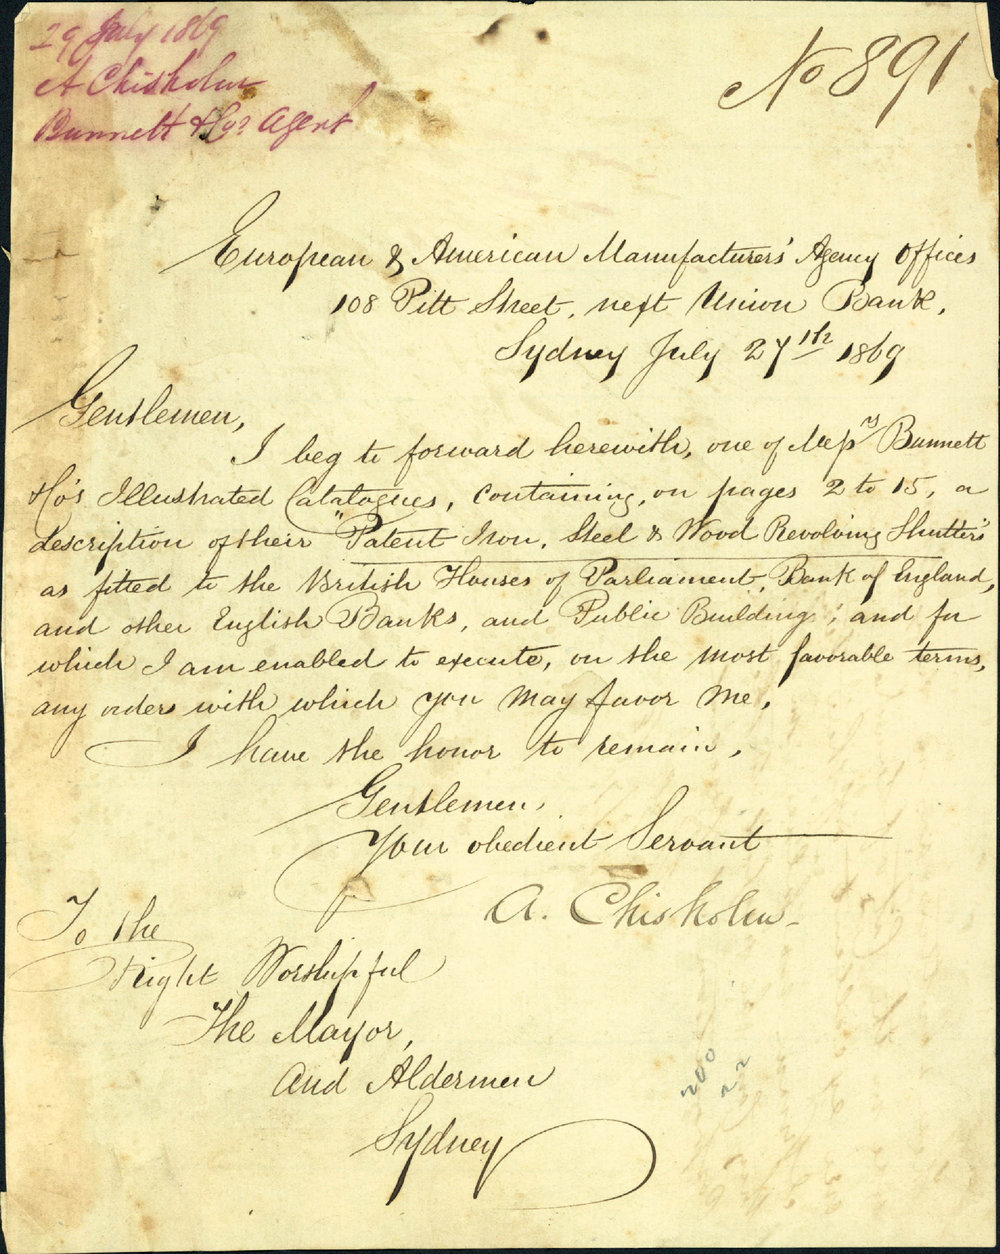 29 July 1869
A Chisholm
Bunnett & Co's Agent
No 891
European & American Manufacturers' Agency Offices
108 Pitt Street, next Union Bank,
Sydney July 27th 1869
Gentlemen,
I beg to forward herewith, one of Messrs Bunnett
& Co's Illustrated Catalogues, containing, on pages 2 to 15, a
description of their "Patent Iron, Steel & Wood Revolving Shutters"
as fitted to the British Houses of Parliament, Bank of England,
and other English Banks, and Public Building; and for
which I am enabled to execute, on the most favorable terms,
any order with which you may favor me.
I have the honor to remain,
Gentlemen,
Your obedient Servant
A. Chisholm
To the
Right Worshipful
The Mayor,
And Aldermen
Sydney
200
22